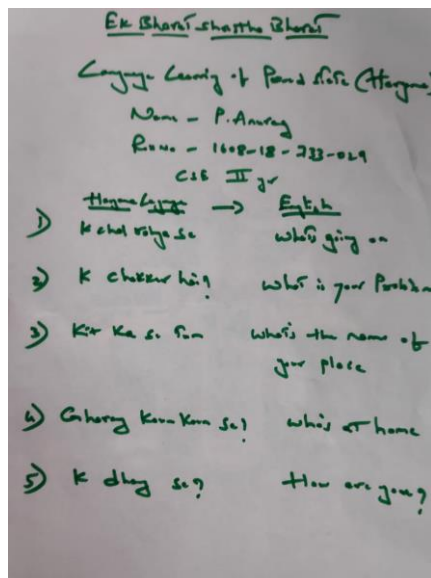 Ek Bharat shrestha Bharat
Language Learning of Paired state (Haryana)
Name - P. Anurag
R.No - 1608-18-733-029
CSE II yr
Haryana Language → English
1) K chal rahya se what's going on
2) K chakkar hai? what is your Problem
3) Kit Ka se tum what's the name of
your place
4) Gharay Kaun Kaun se? who's at home
5) K dhang se? How are you?